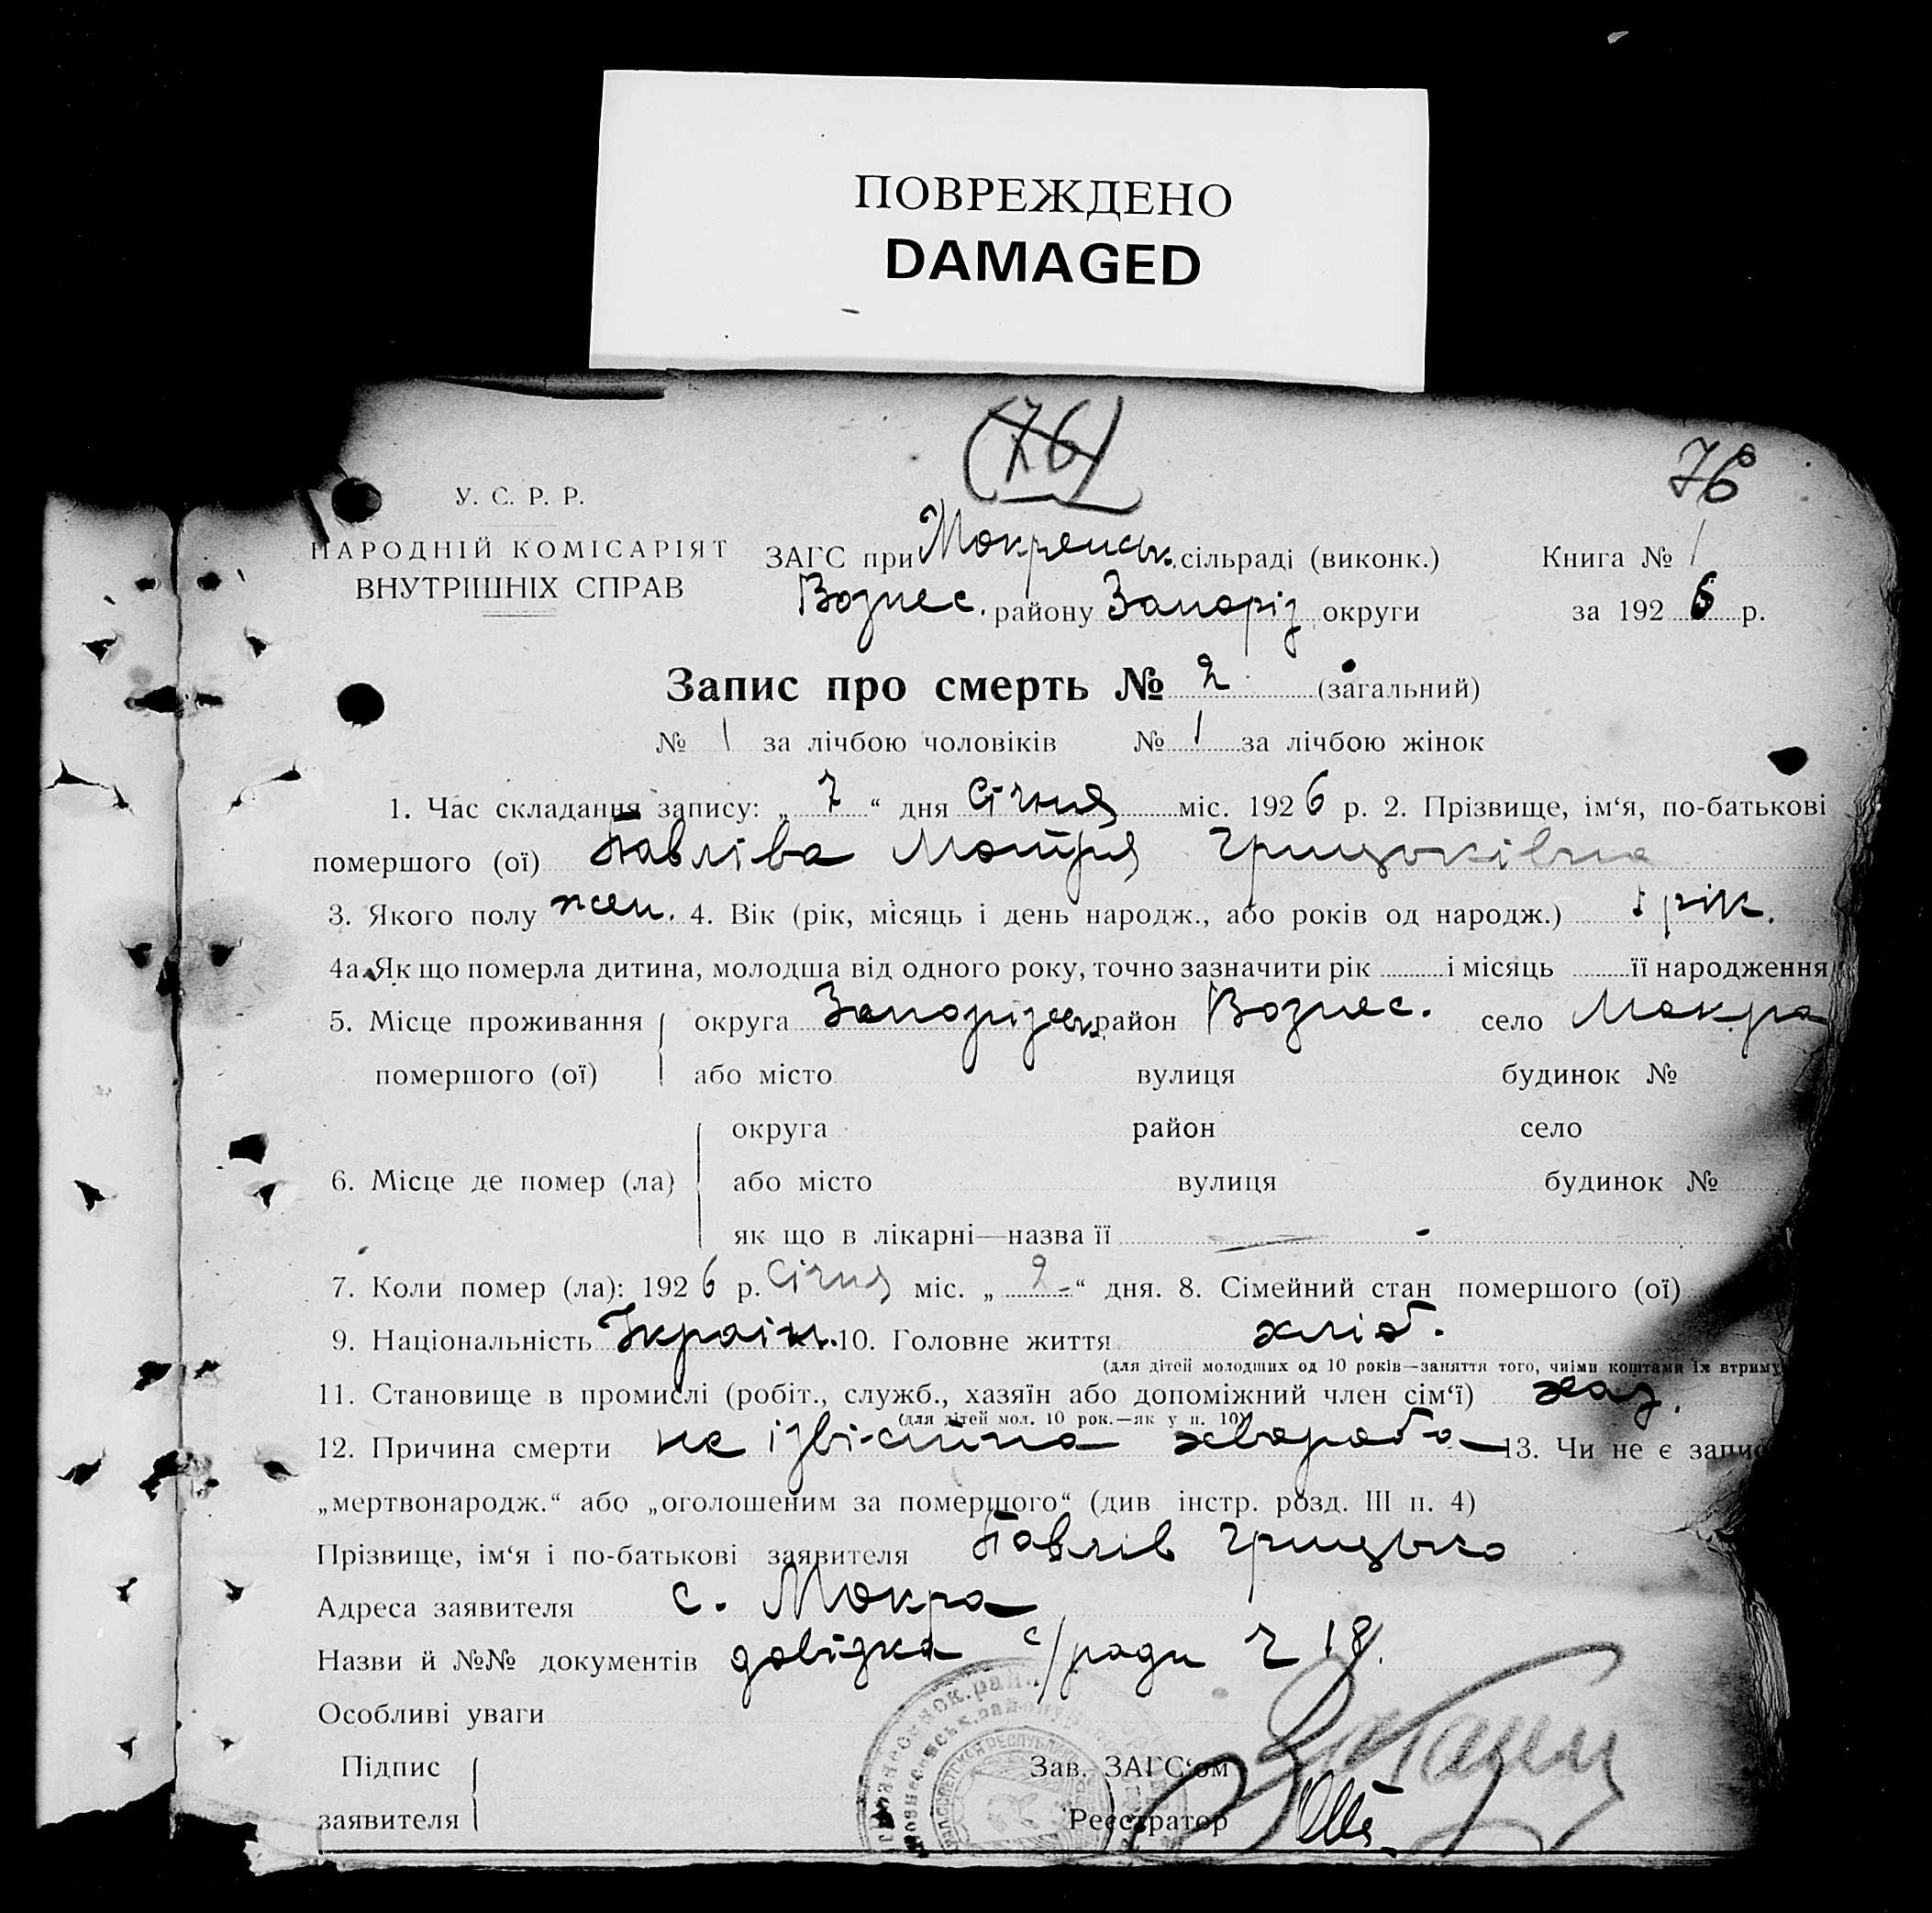 ПОВРЕЖДЕНО
DAMAGED
(76)
76
У. С. Р. Р.
НАРОДНІЙ КОМІСАРІЯТ
ВНУТРІШНІХ СПРАВ
ЗАГС при Мокренськ. сільраді (виконк.)
Вознес. району Запоріз. округи
Книга № 1
за 1926 р.
Запис про смерть № 2 (загальний)
№ 1 за лічбою чоловіків № 1 за лічбою жінок
1. Час складання запису: „ 7 “ дня січня міс. 1926 р. 2. Прізвище, ім‘я, по-батькові
помершого (ої) Павліва Мотря Грицьківна
3. Якого полу жен. 4. Вік (рік, місяць і день народж., або років од народж.) 1 рік.
4а. Як що померла дитина, молодша від одного року, точно зазначити рік і місяць її народження
5. Місце проживання округа Запорізьк. район Вознес. село Мокра
помершого (ої) або місто вулиця будинок №
округа район село
6. Місце де помер (ла) або місто вулиця будинок №
як що в лікарні—назва її
7. Коли помер (ла): 1926 р. Січня міс. „ 2 “ дня. 8. Сімейний стан помершого (ої)
9. Національність Україн. 10. Головне життя хліб.
(для дітей молодших од 10 років—заняття того, чиїми коштами їх втриму
11. Становище в промислі (робіт., служб., хазяїн або допоміжний член сім‘ї) хаз.
(для дітей мол. 10 рок.—як у п. 10)
12. Причина смерти не ізвістна хвороба 13. Чи не є запис
„мертвонародж.“ або „оголошеним за помершого“ (див інстр. розд. III п. 4)
Прізвище, ім‘я і по-батькові заявителя Павлів Грицько
Адреса заявителя с. Мокра
Назви й №№ документів довідка с/ради Ч 18.
Особливі уваги
Підпис
заявителя
Зав. ЗАГС‘ом
Реєстратор